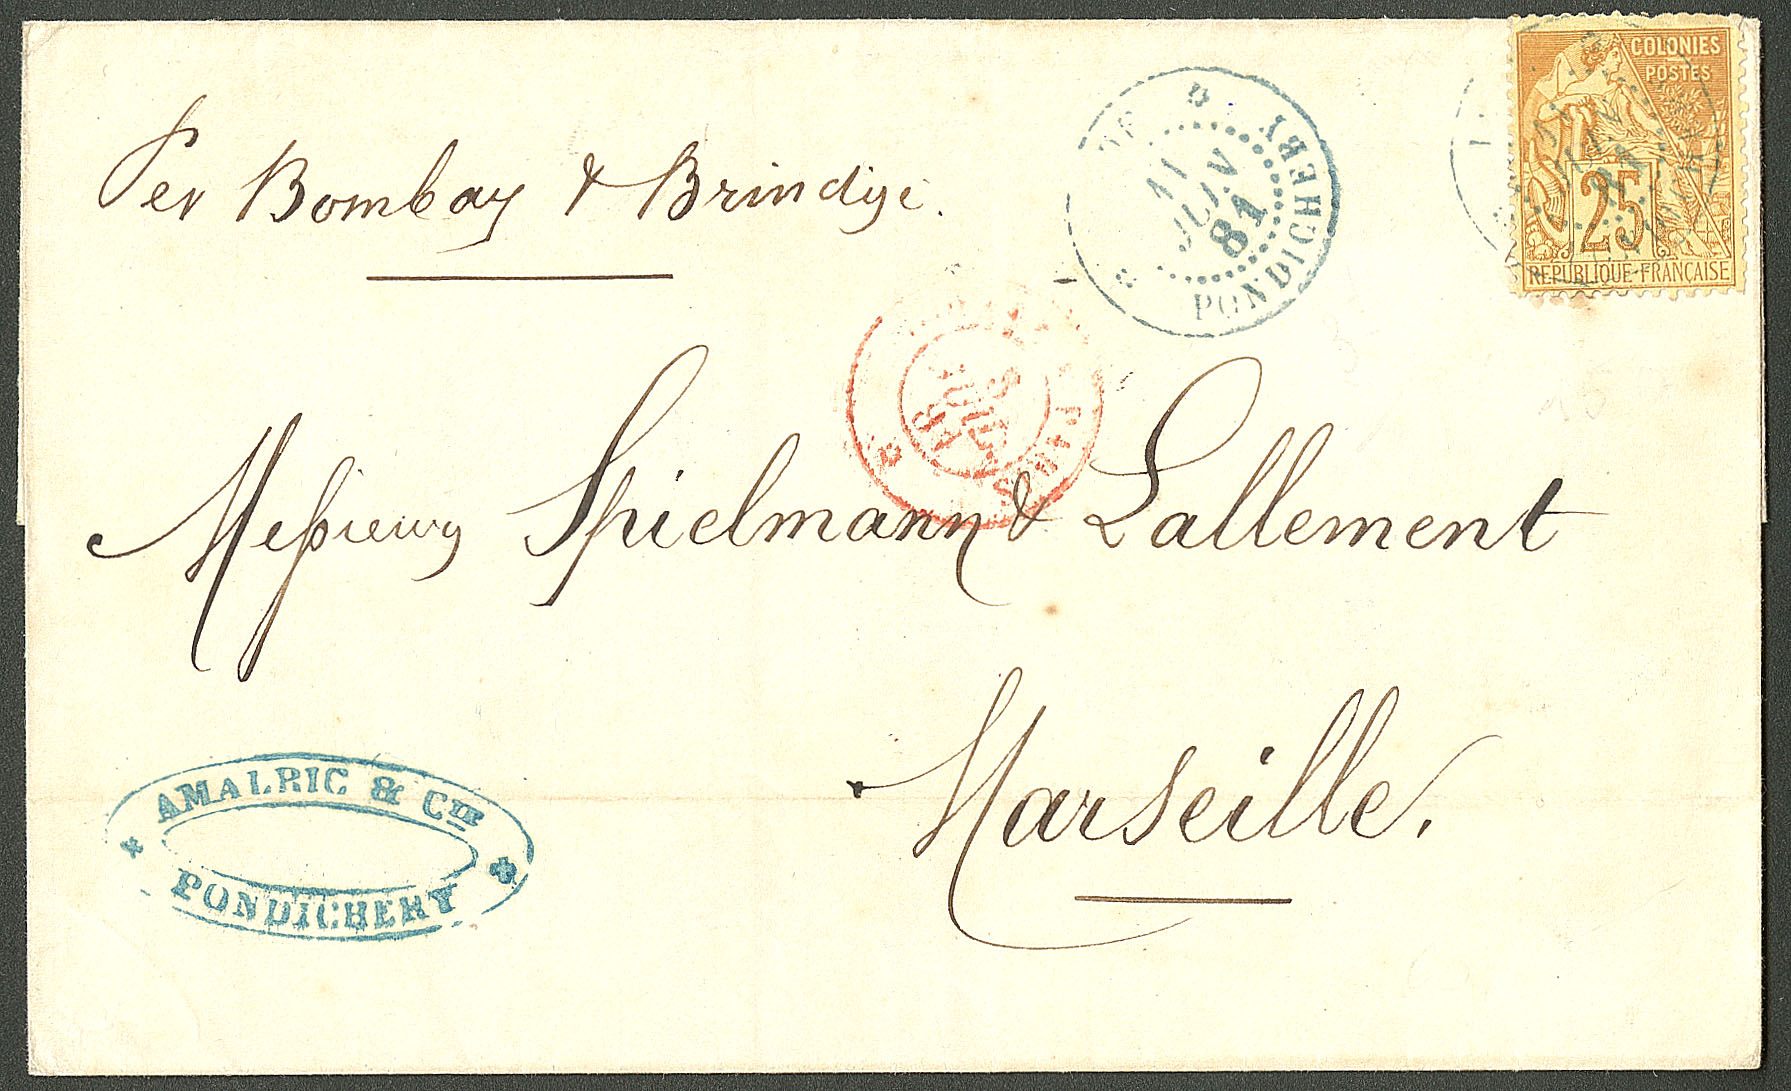 COLONIES
POSTES
25
REPUBLIQUE FRANCAISE
11
JUIN
81
PONDICHERY
Per Bombay & Brindisi.
PARIS
81
Messieurs Spielmann & Lallement
Marseille.
AMALRIC & CIE
PONDICHERY